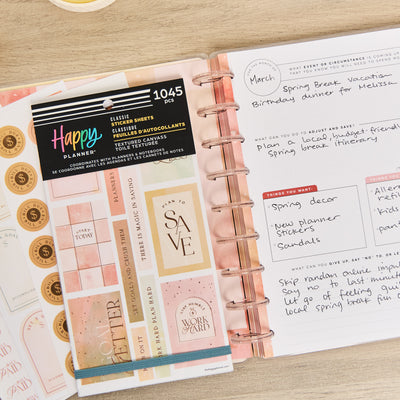 1045
pcs
CLASSIC
STICKER SHEETS
CLASSIQUE
FEUILLES D'AUTOCOLLANTS
TEXTURED CANVAS
TOILE TEXTURÉE
Happy
PLANNER®
COORDINATES WITH PLANNERS & NOTEBOOKS
SE COORDONNE AVEC LES AGENDAS ET LES CARNETS DE NOTES
START
TODAY
SET GOALS AND CRUSH THEM
THERE IS MAGIC IN SAVING
PLAN TO
SAVE
WORK
HARD
PLAN HARD
March
WHAT EVENT OR CIRCUMSTANCE IS COMING UP
THAT YOU KNOW YOU WILL NEED TO SPEND MONEY
Spring Break Vacation
Birthday dinner for Melissa
WHAT CAN YOU DO TO ADJUST AND SAVE?
Plan a local budget-friendly
Spring break itinerary
THINGS YOU WANT:
• Spring decor
• New planner
stickers
• Sandals
WHAT CAN YOU GIVE UP, SAY "NO" TO, OR LE
Skip random online
Say no to last minute
let go of feeling
local spring break fun